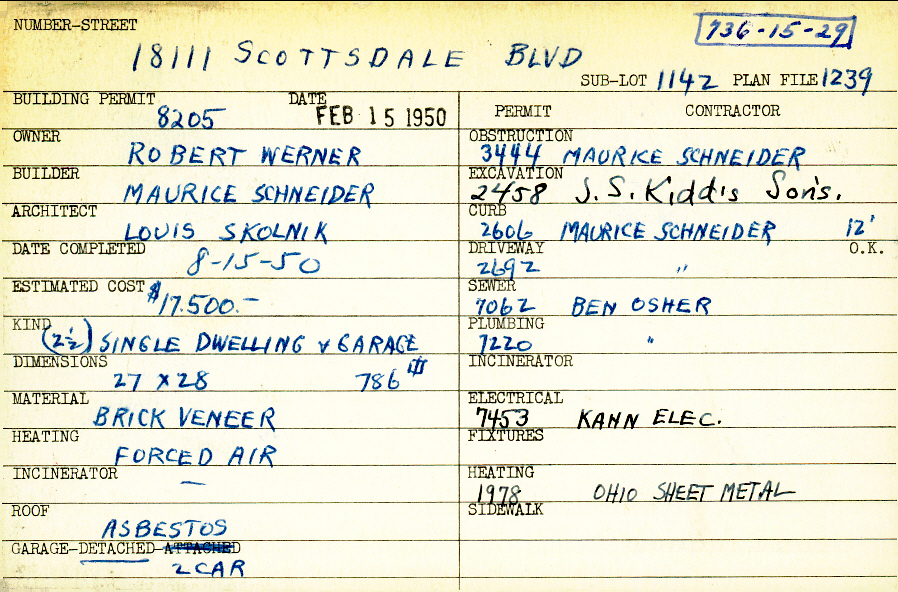 NUMBER-STREET
736-15-29
18111 SCOTTSDALE BLVD
SUB-LOT 1142 PLAN FILE 1239
BUILDING PERMIT 8205 DATE FEB 15 1950
OWNER ROBERT WERNER
BUILDER MAURICE SCHNEIDER
ARCHITECT LOUIS SKOLNIK
DATE COMPLETED 8-15-50
ESTIMATED COST $17.500.-
KIND (2½) SINGLE DWELLING & GARAGE
DIMENSIONS 27 x 28 786
MATERIAL BRICK VENEER
HEATING FORCED AIR
INCINERATOR —
ROOF ASBESTOS
GARAGE-DETACHED-ATTACHED
2 CAR
PERMIT CONTRACTOR
OBSTRUCTION 3444 MAURICE SCHNEIDER
EXCAVATION 2458 J.S. Kidd's Son's.
CURB 2606 MAURICE SCHNEIDER 12'
DRIVEWAY 2692 " O.K.
SEWER 7062 BEN OSHER
PLUMBING 7220 "
INCINERATOR
ELECTRICAL 7453 KAHN ELEC.
FIXTURES
HEATING 1978 OHIO SHEET METAL
SIDEWALK